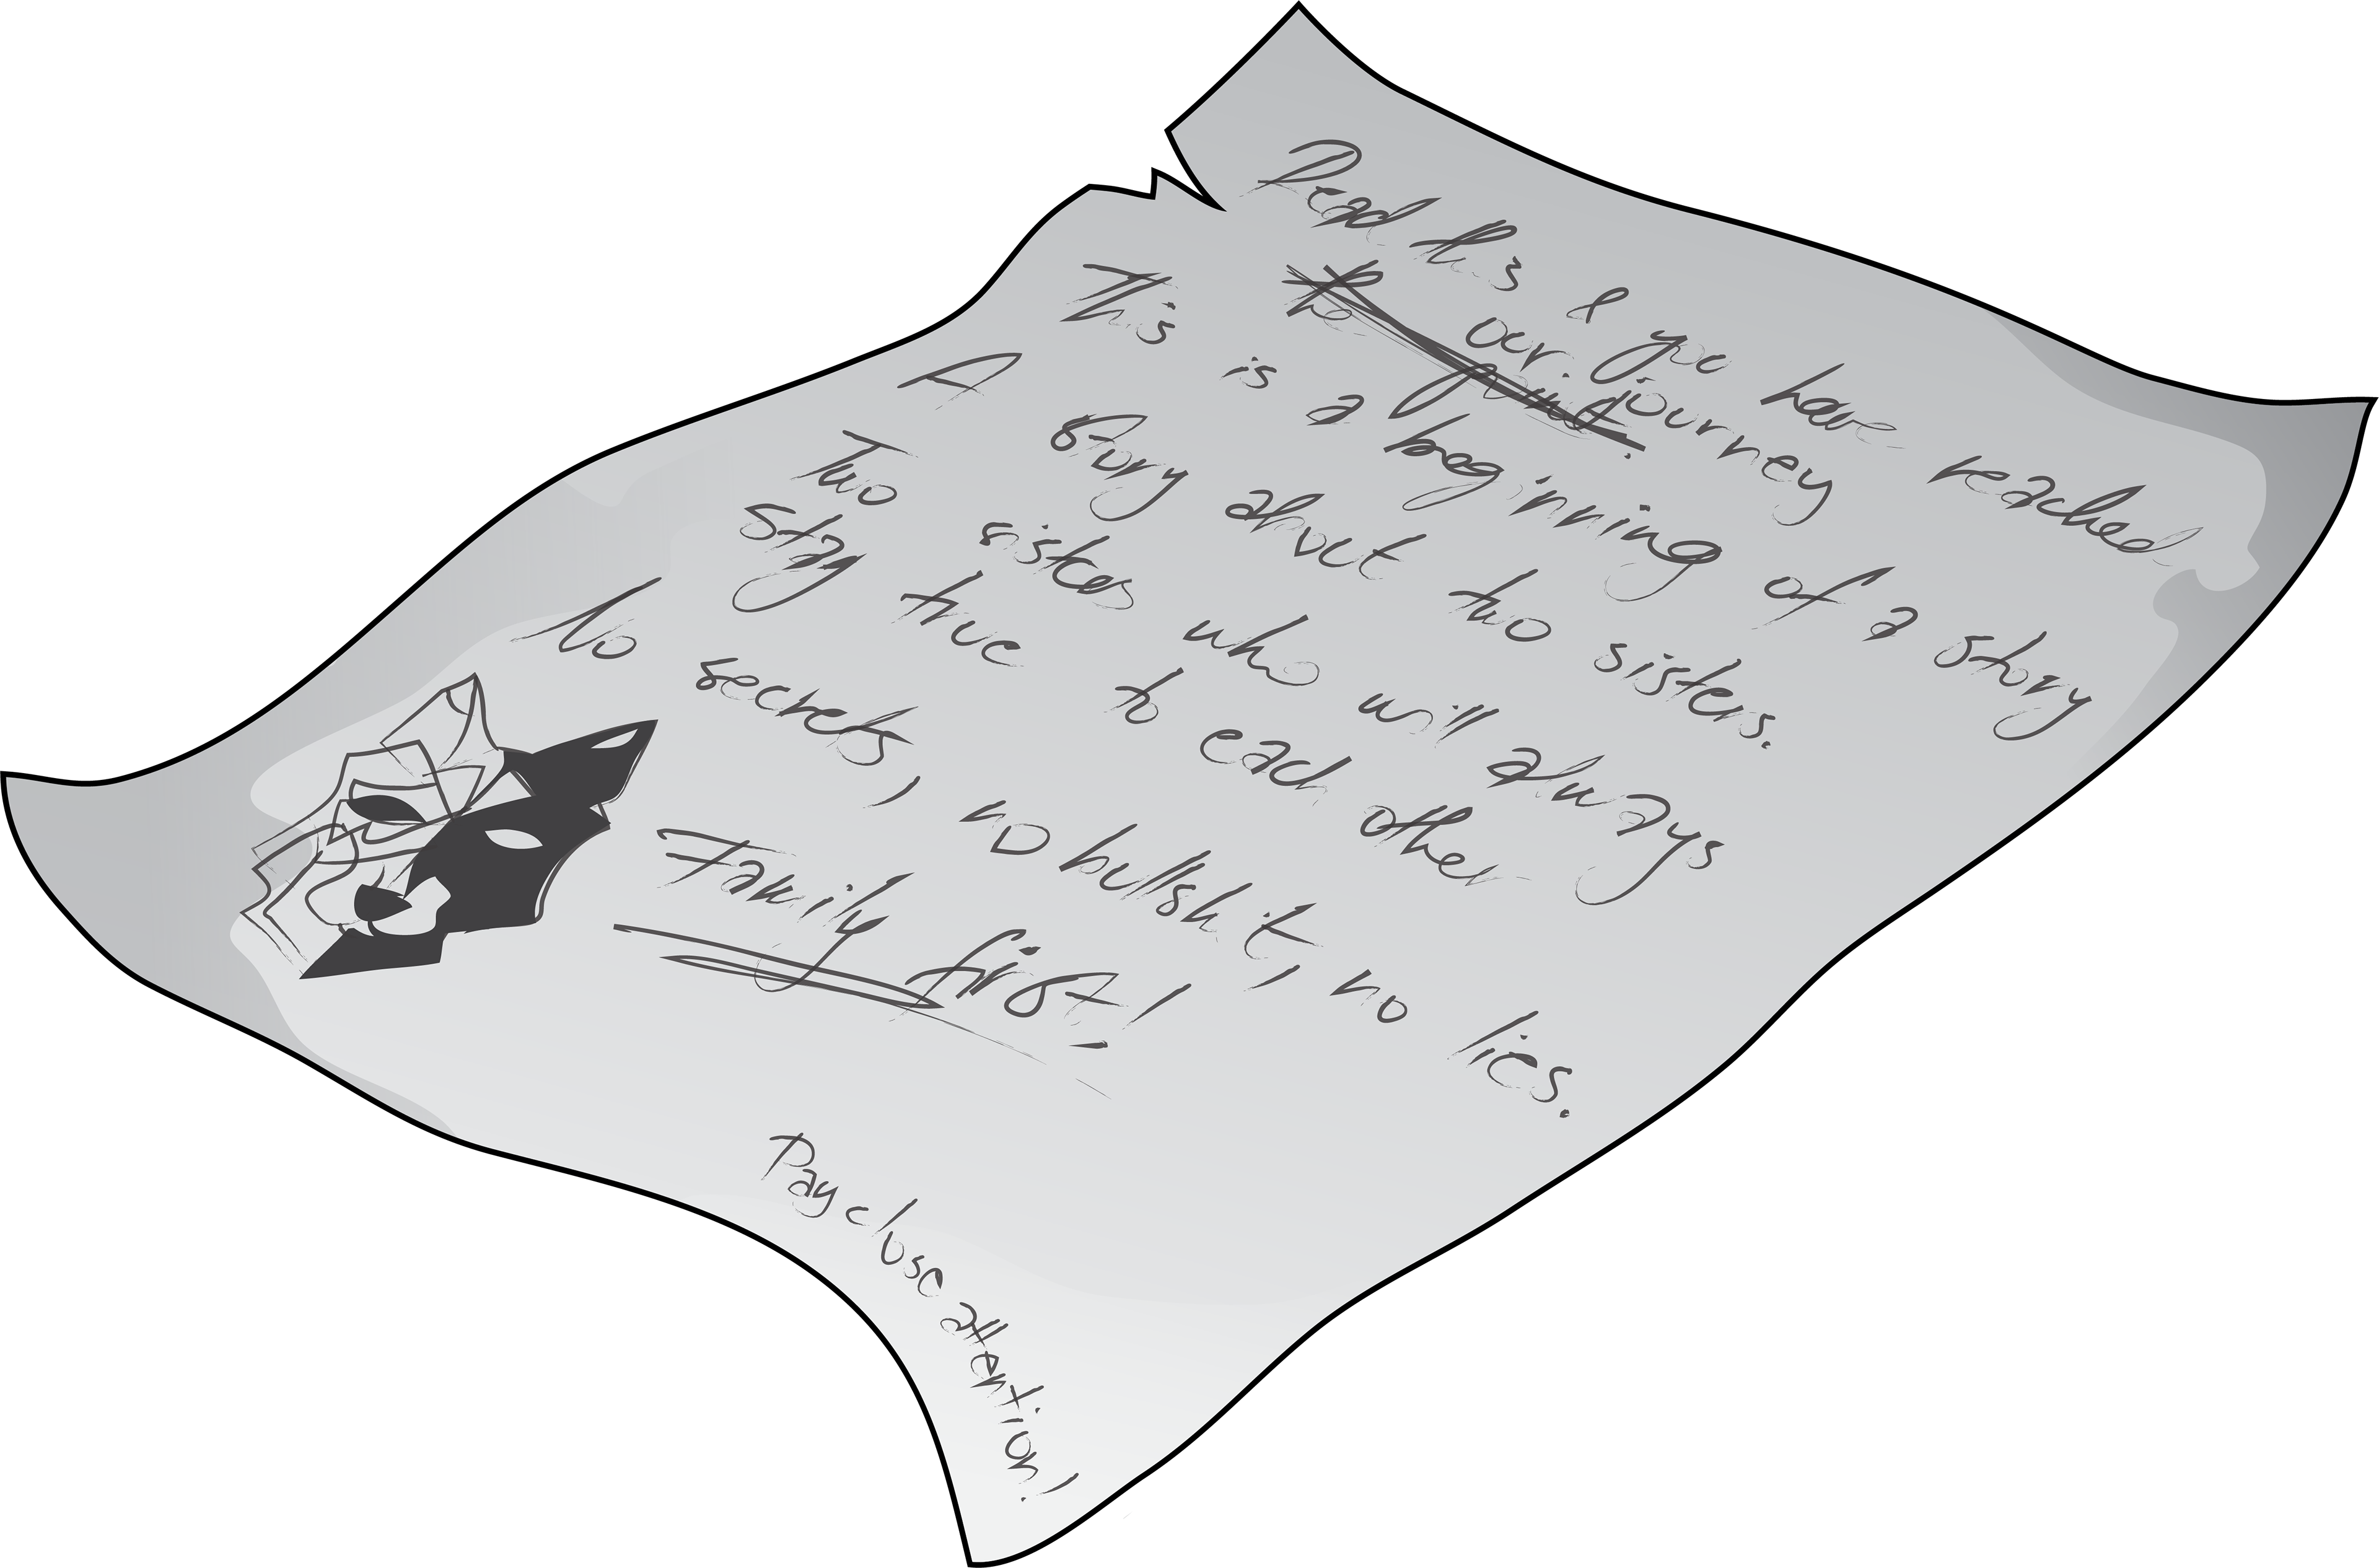 Read this & you have reached
our journey
This is a beginning of a story
A story about two sisters.
Two sisters who will always
stay true to each other
No secrets, no bullshit, no lies.
Family first!
Pay close attention!